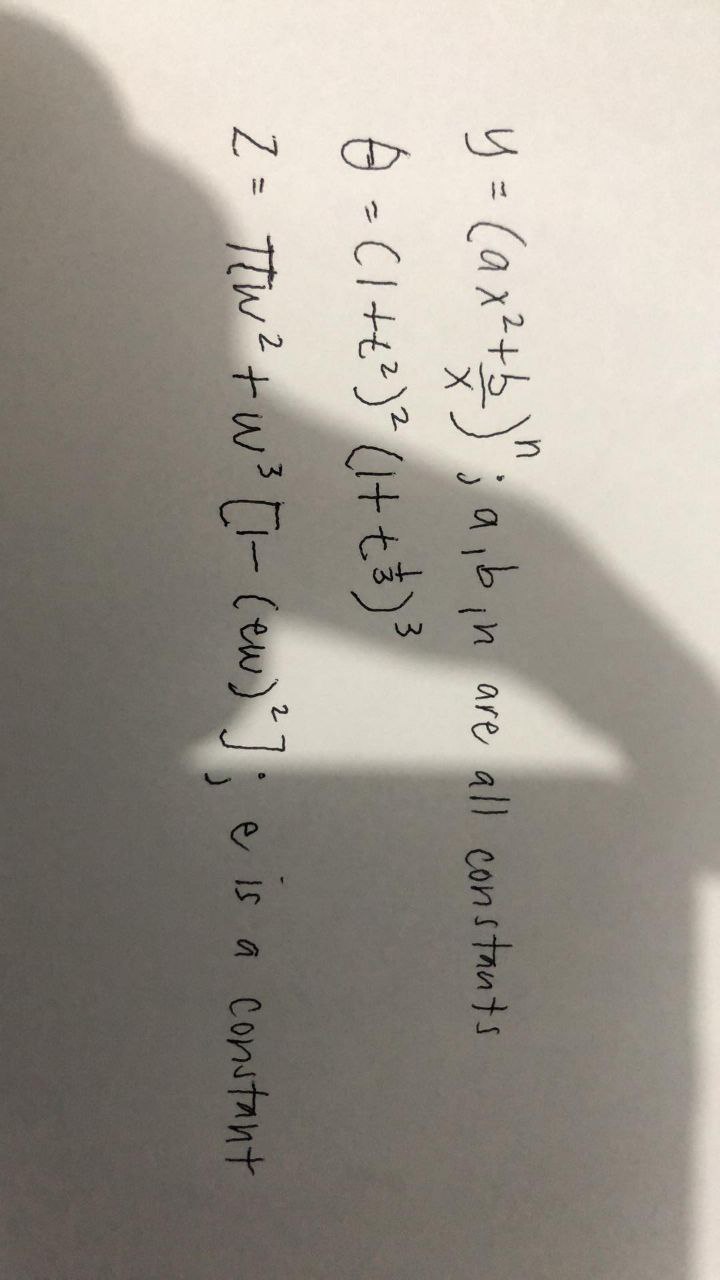 y = (ax² + b/x)ⁿ ; a, b, n are all constants
θ = (1 + t²)² (1 + t^(1/3))³
Z = πw² + w³ [1 - (ew)²] ; e is a constant